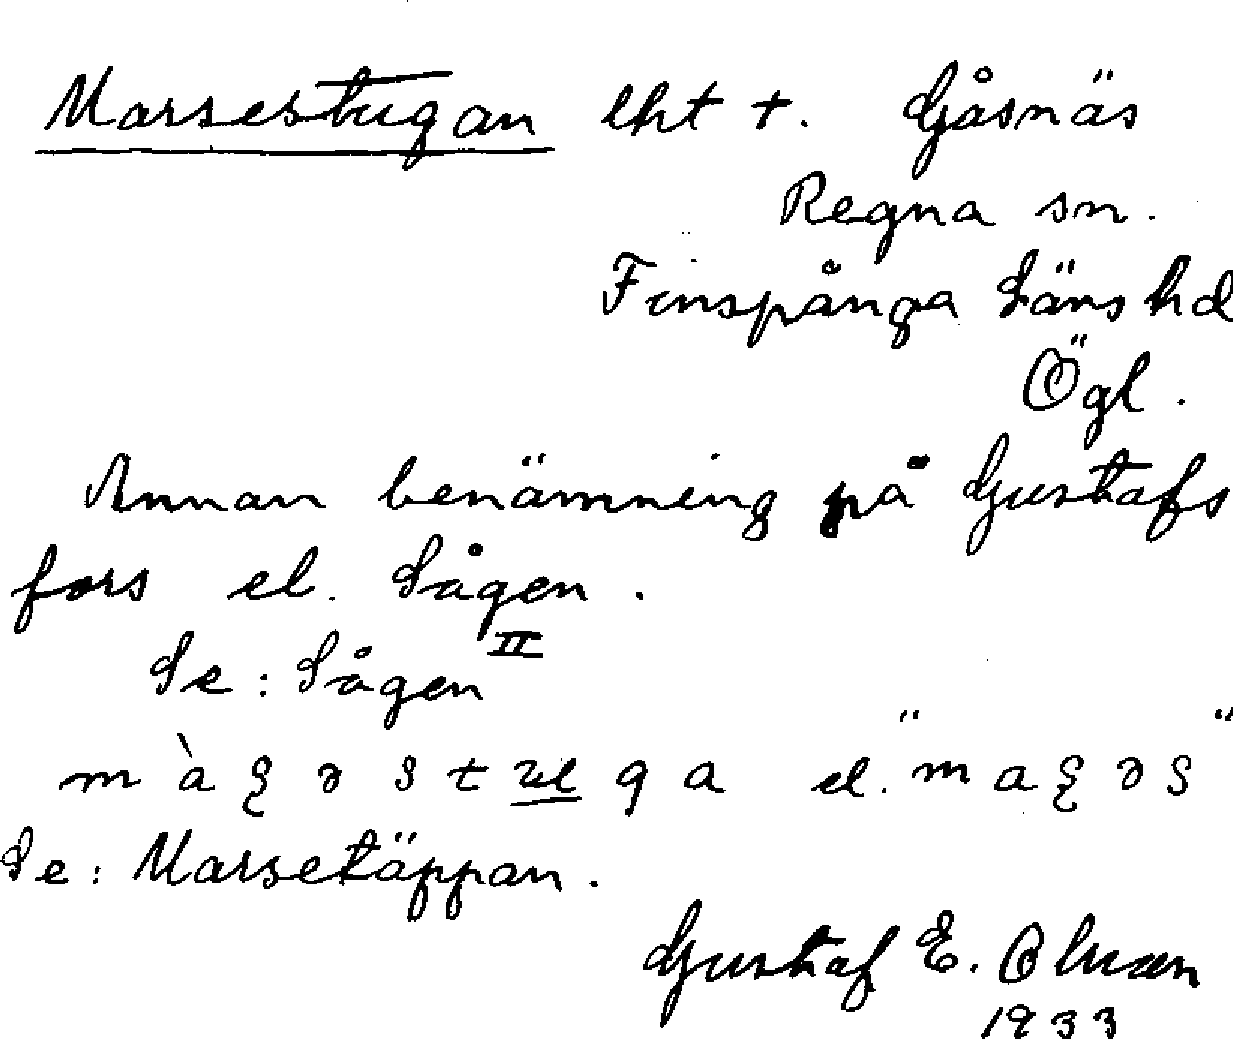 Marsestugan lht +. Gåsnäs
Regna sn.
Finspånga Läns hd
Ögl.
Annan benämning på Gustafs
fors el. Sågen.
Se: Sågen II
el.
Se: Marsetäppan.
Gustaf E. Olsson
1933